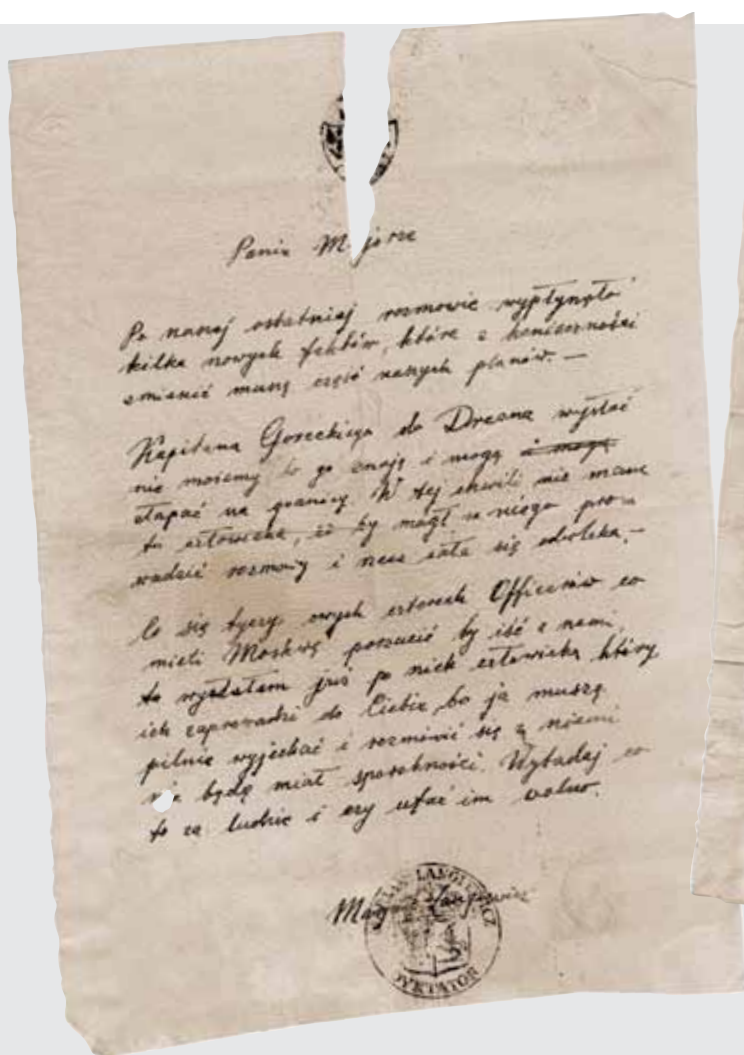 Panie Majorze
Po naszej ostatniej rozmowie wypłynęło
kilka nowych faktów, które z konieczności
zmienić muszą część naszych planów. —
Kapitana Goreckiego do Drezna wysłać
nie możemy bo go znają i mogą
złapać na granicy. W tej chwili nie mamy
to człowieka, co by mógł za niego pro-
wadzić rozmowy i rzecz cała się odwleka. —
Co się tyczy owych czterech Officerów co
mieli Moskwę porzucić by iść z nami,
to wysłałem już po nich człowieka który
ich zaprowadzi do Ciebie, bo ja muszę
pilnie wyjechać i rozmówić się z niemi
nie będę miał sposobności. Wybadaj co
to za ludzie i czy ufać im wolno.
LANGIEWICZ
DYKTATOR